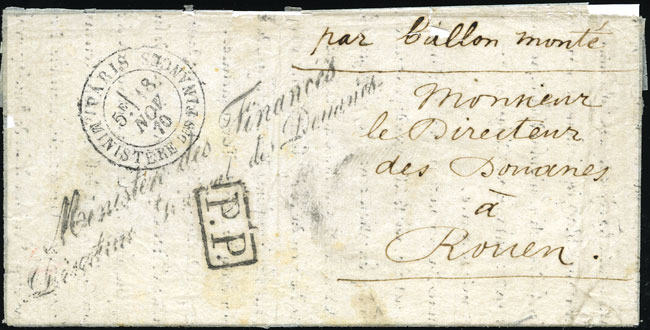 par ballon monté
PARIS
MINISTÈRE DES FINANCES
5E/ 8
NOV
70
Ministère des Finances
Direction Général des Douanes
P.P.
Monsieur
le Directeur
des Douanes
à
Rouen.